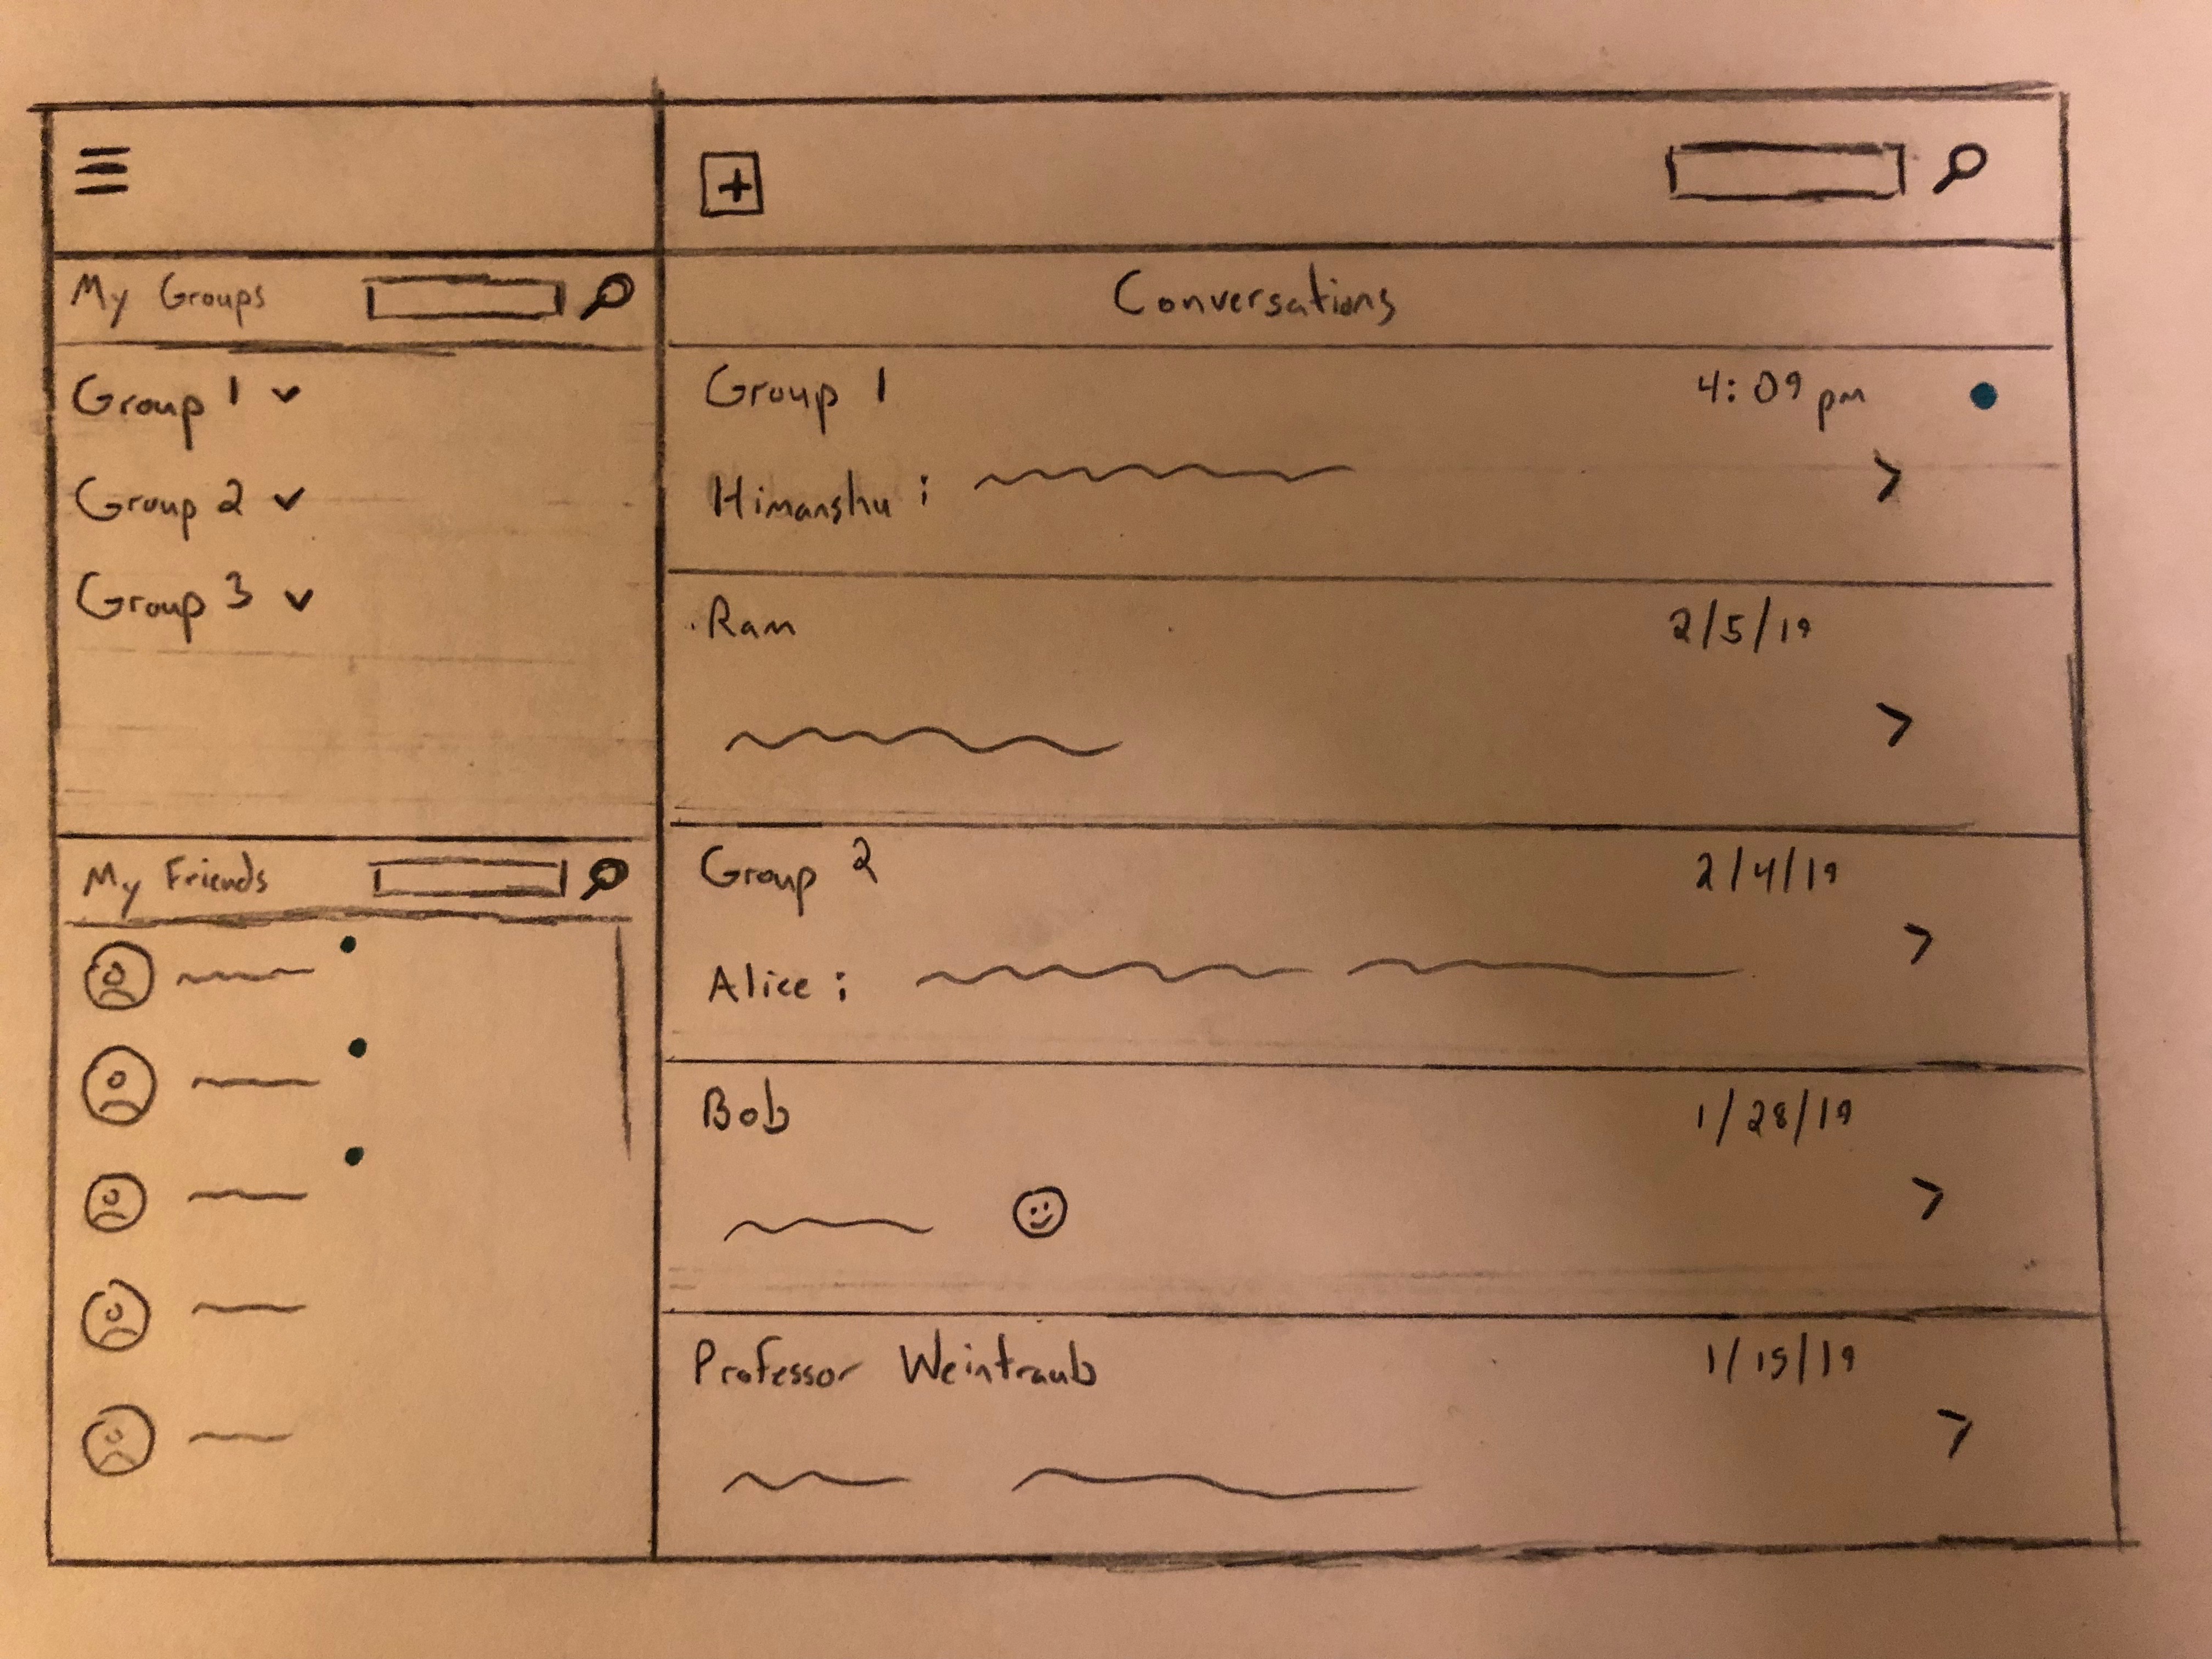 My Groups
Group 1
Group 2
Group 3
My Friends
Conversations
Group 1 4:09 pm
Himanshu :
Ram 2/5/19
Group 2 2/4/19
Alice :
Bob 1/28/19
Professor Weintraub 1/15/19